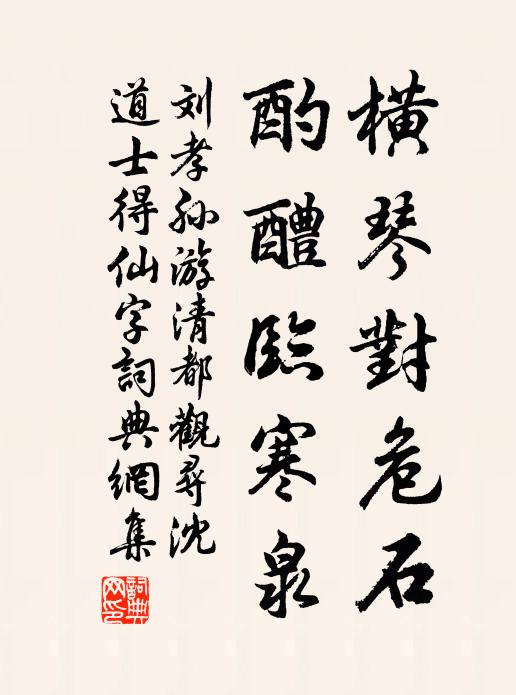 橫琴對危石
酌醴臨寒泉
刘孝孙游清都觀尋沈
道士得仙字詞典網集
詞典网印